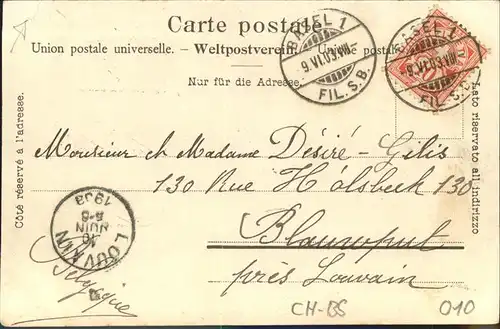 Carte postale
Union postale universelle. – Weltpostverein. Unione postale
Nur für die Adresse.
BASEL 1
9.VI.03.VIII–
FIL. S.B.
BASEL 1
9.VI.03.VIII–
FIL. S.B.
Côté réservé à l'adresse.
Lato riservato all indirizzo
Monsieur et Madame Désiré-Gilis
130 Rue Hôlsbeck 130
Blauwput
près Louvain
Belgique
LOUVAIN
10
JUIN
1903
CH-BS
010